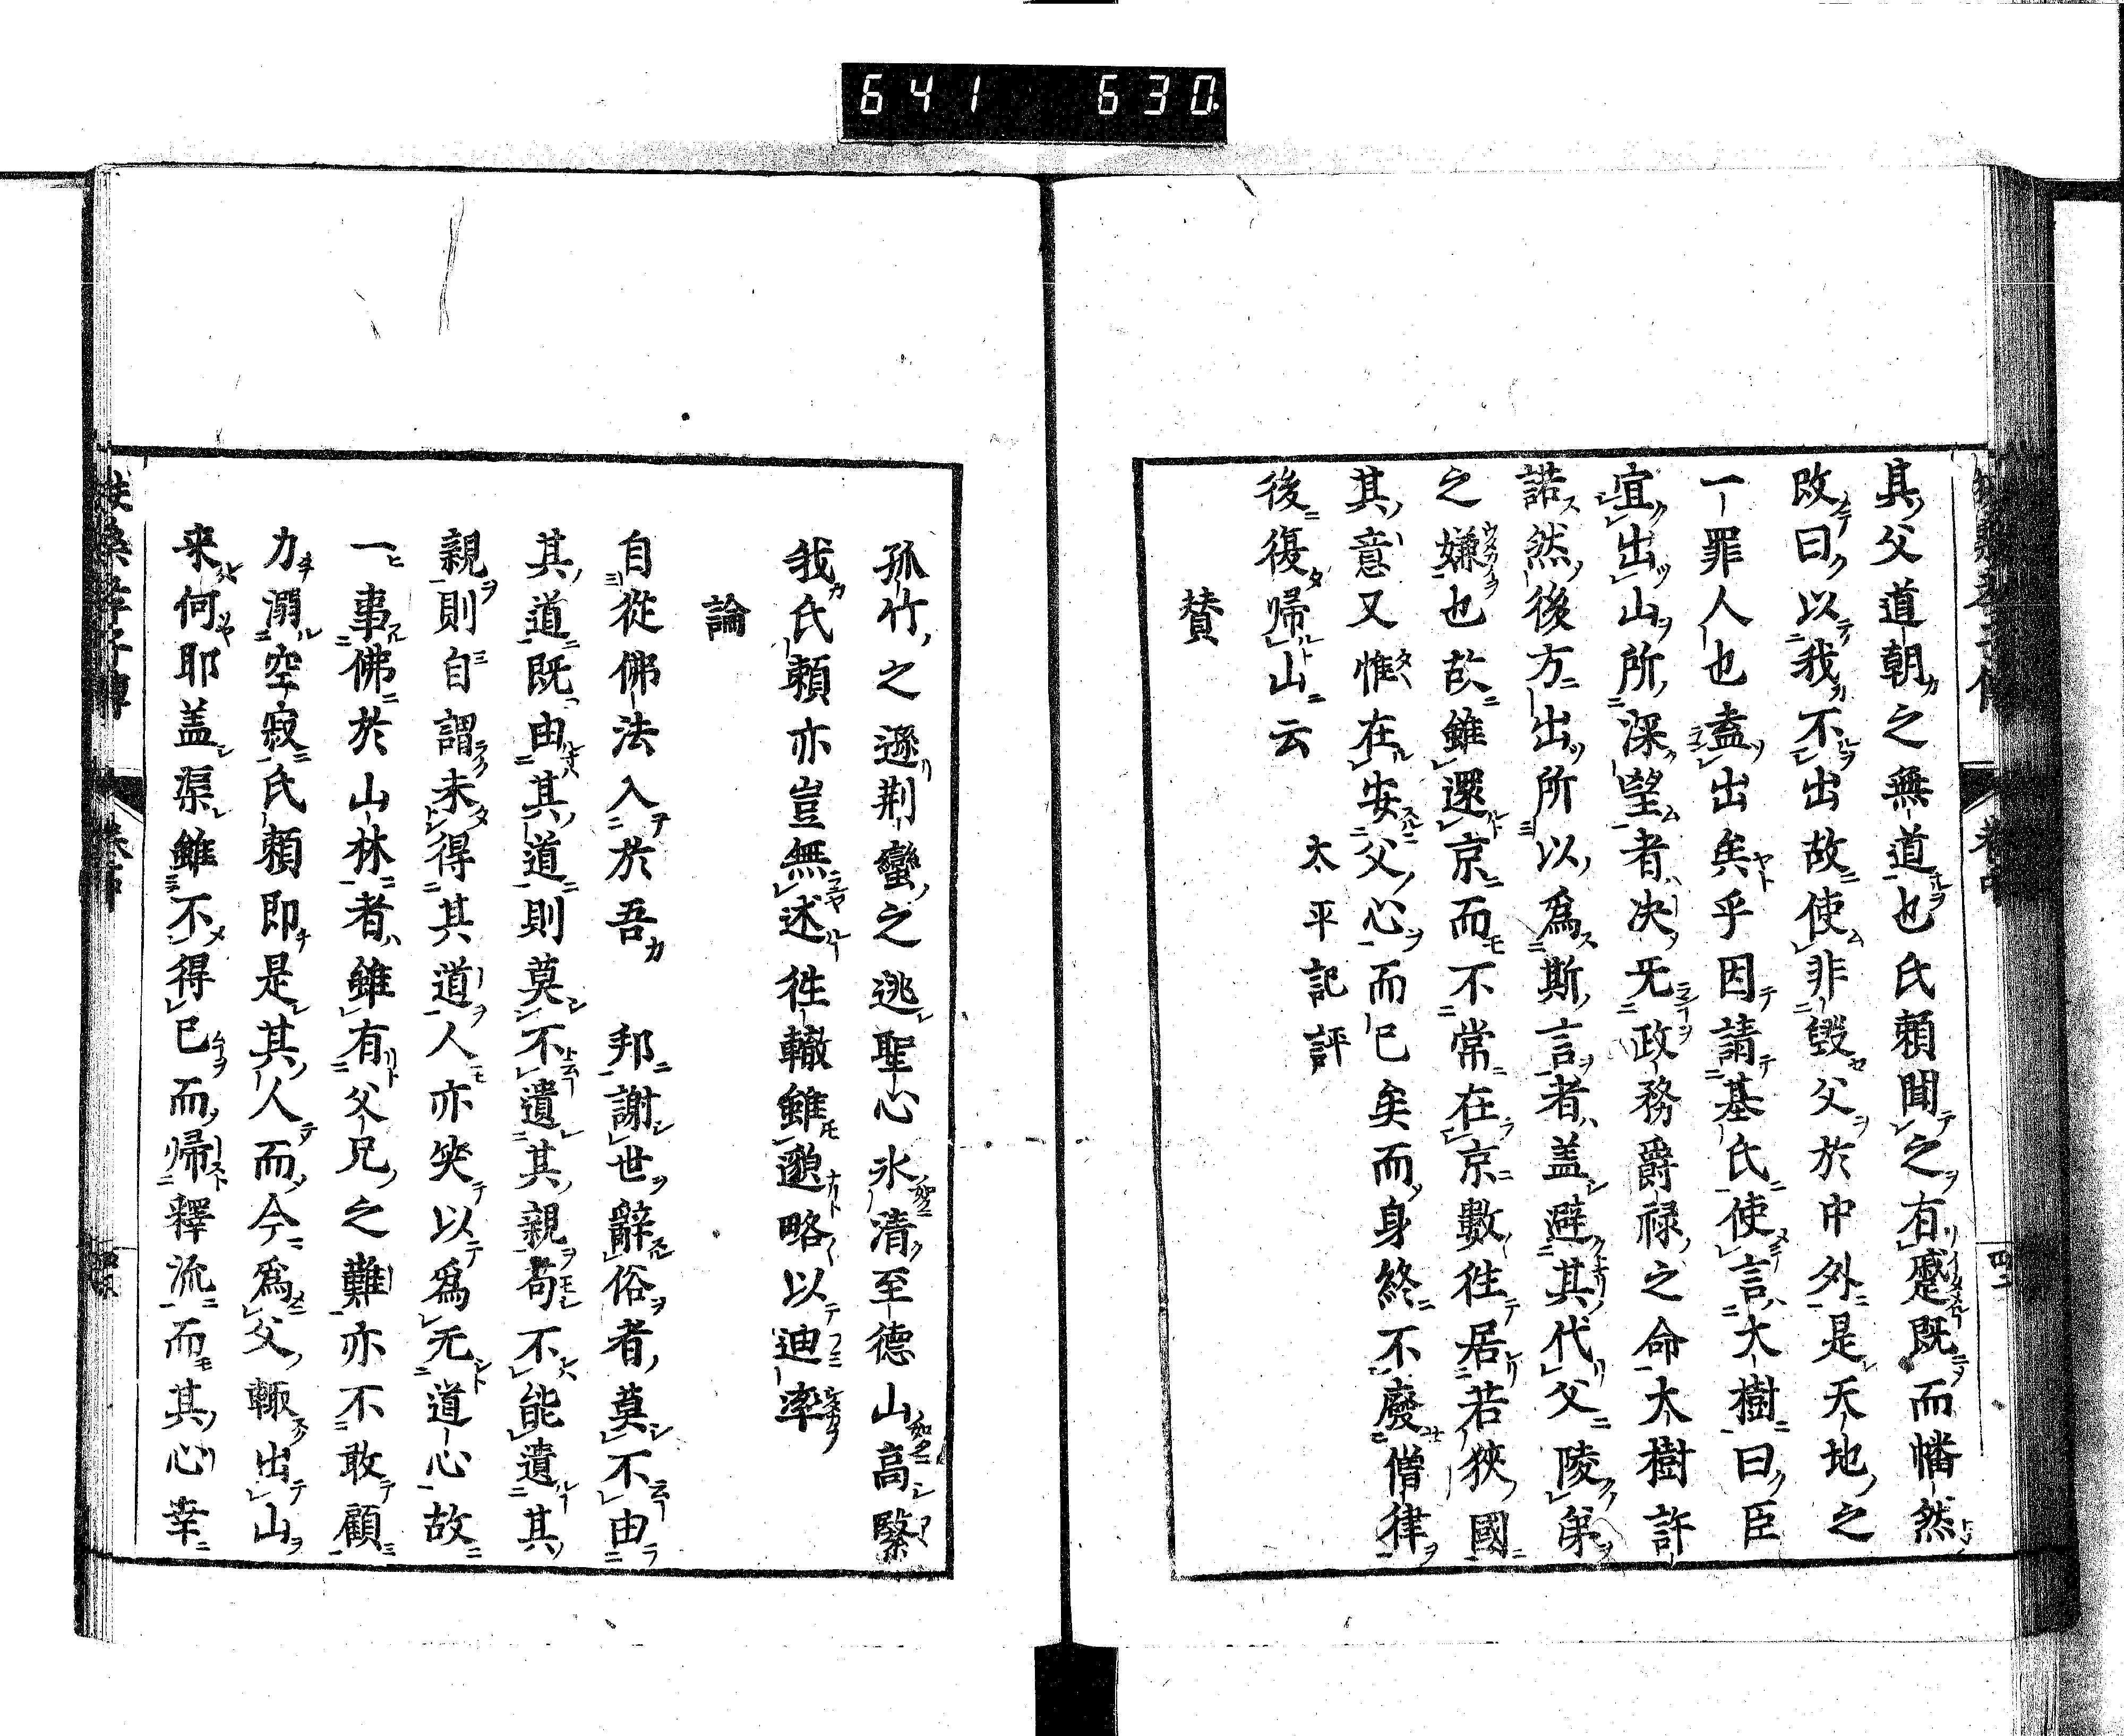 641 630.
其父道朝之無道也氏頼聞之有蹙既而幡然
改曰以我不出故使非毀父於中外是天地之
一罪人也盍出矣乎因請基氏使言大樹曰臣
宜出山所深望者决无政務爵禄之命大樹許
諾然後方出所以為斯言者盖避其代父陵弟
之嫌也故雖還京而不常在京數徃居若狹國
其意又惟在安父心而已矣而身終不廢僧律
後復帰山云 太平記評
賛
孤竹之遜荆蠻之逃聖心氷清至德山高緊
我氏頼亦豈無述徃轍雖邈略以迪率
論
自從佛法入於吾 邦謝世辭俗者莫不由
其道既由其道則莫不遺其親苟不能遺其
親則自謂未得其道人亦笑以為无道心故
一事佛於山林者雖有父兄之難亦不敢顧
力凋空寂氏頼即是其人而今為父輙出山
来何耶盖渠雖不得已而帰釋流而其心幸